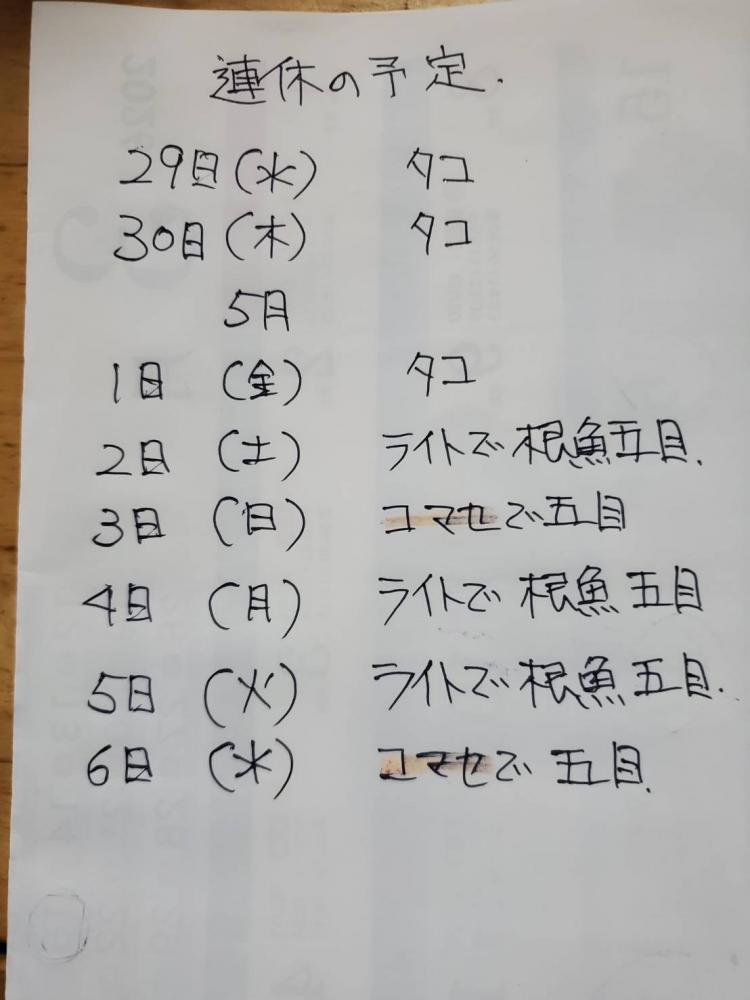 連休の予定.
29日(水) タコ
30日(木) タコ
5月
1日 (金) タコ
2日 (土) ライトで根魚五目.
3日 (日) コマセで五目
4日 (月) ライトで根魚五目
5日 (火) ライトで根魚五目.
6日 (水) コマセで五目.